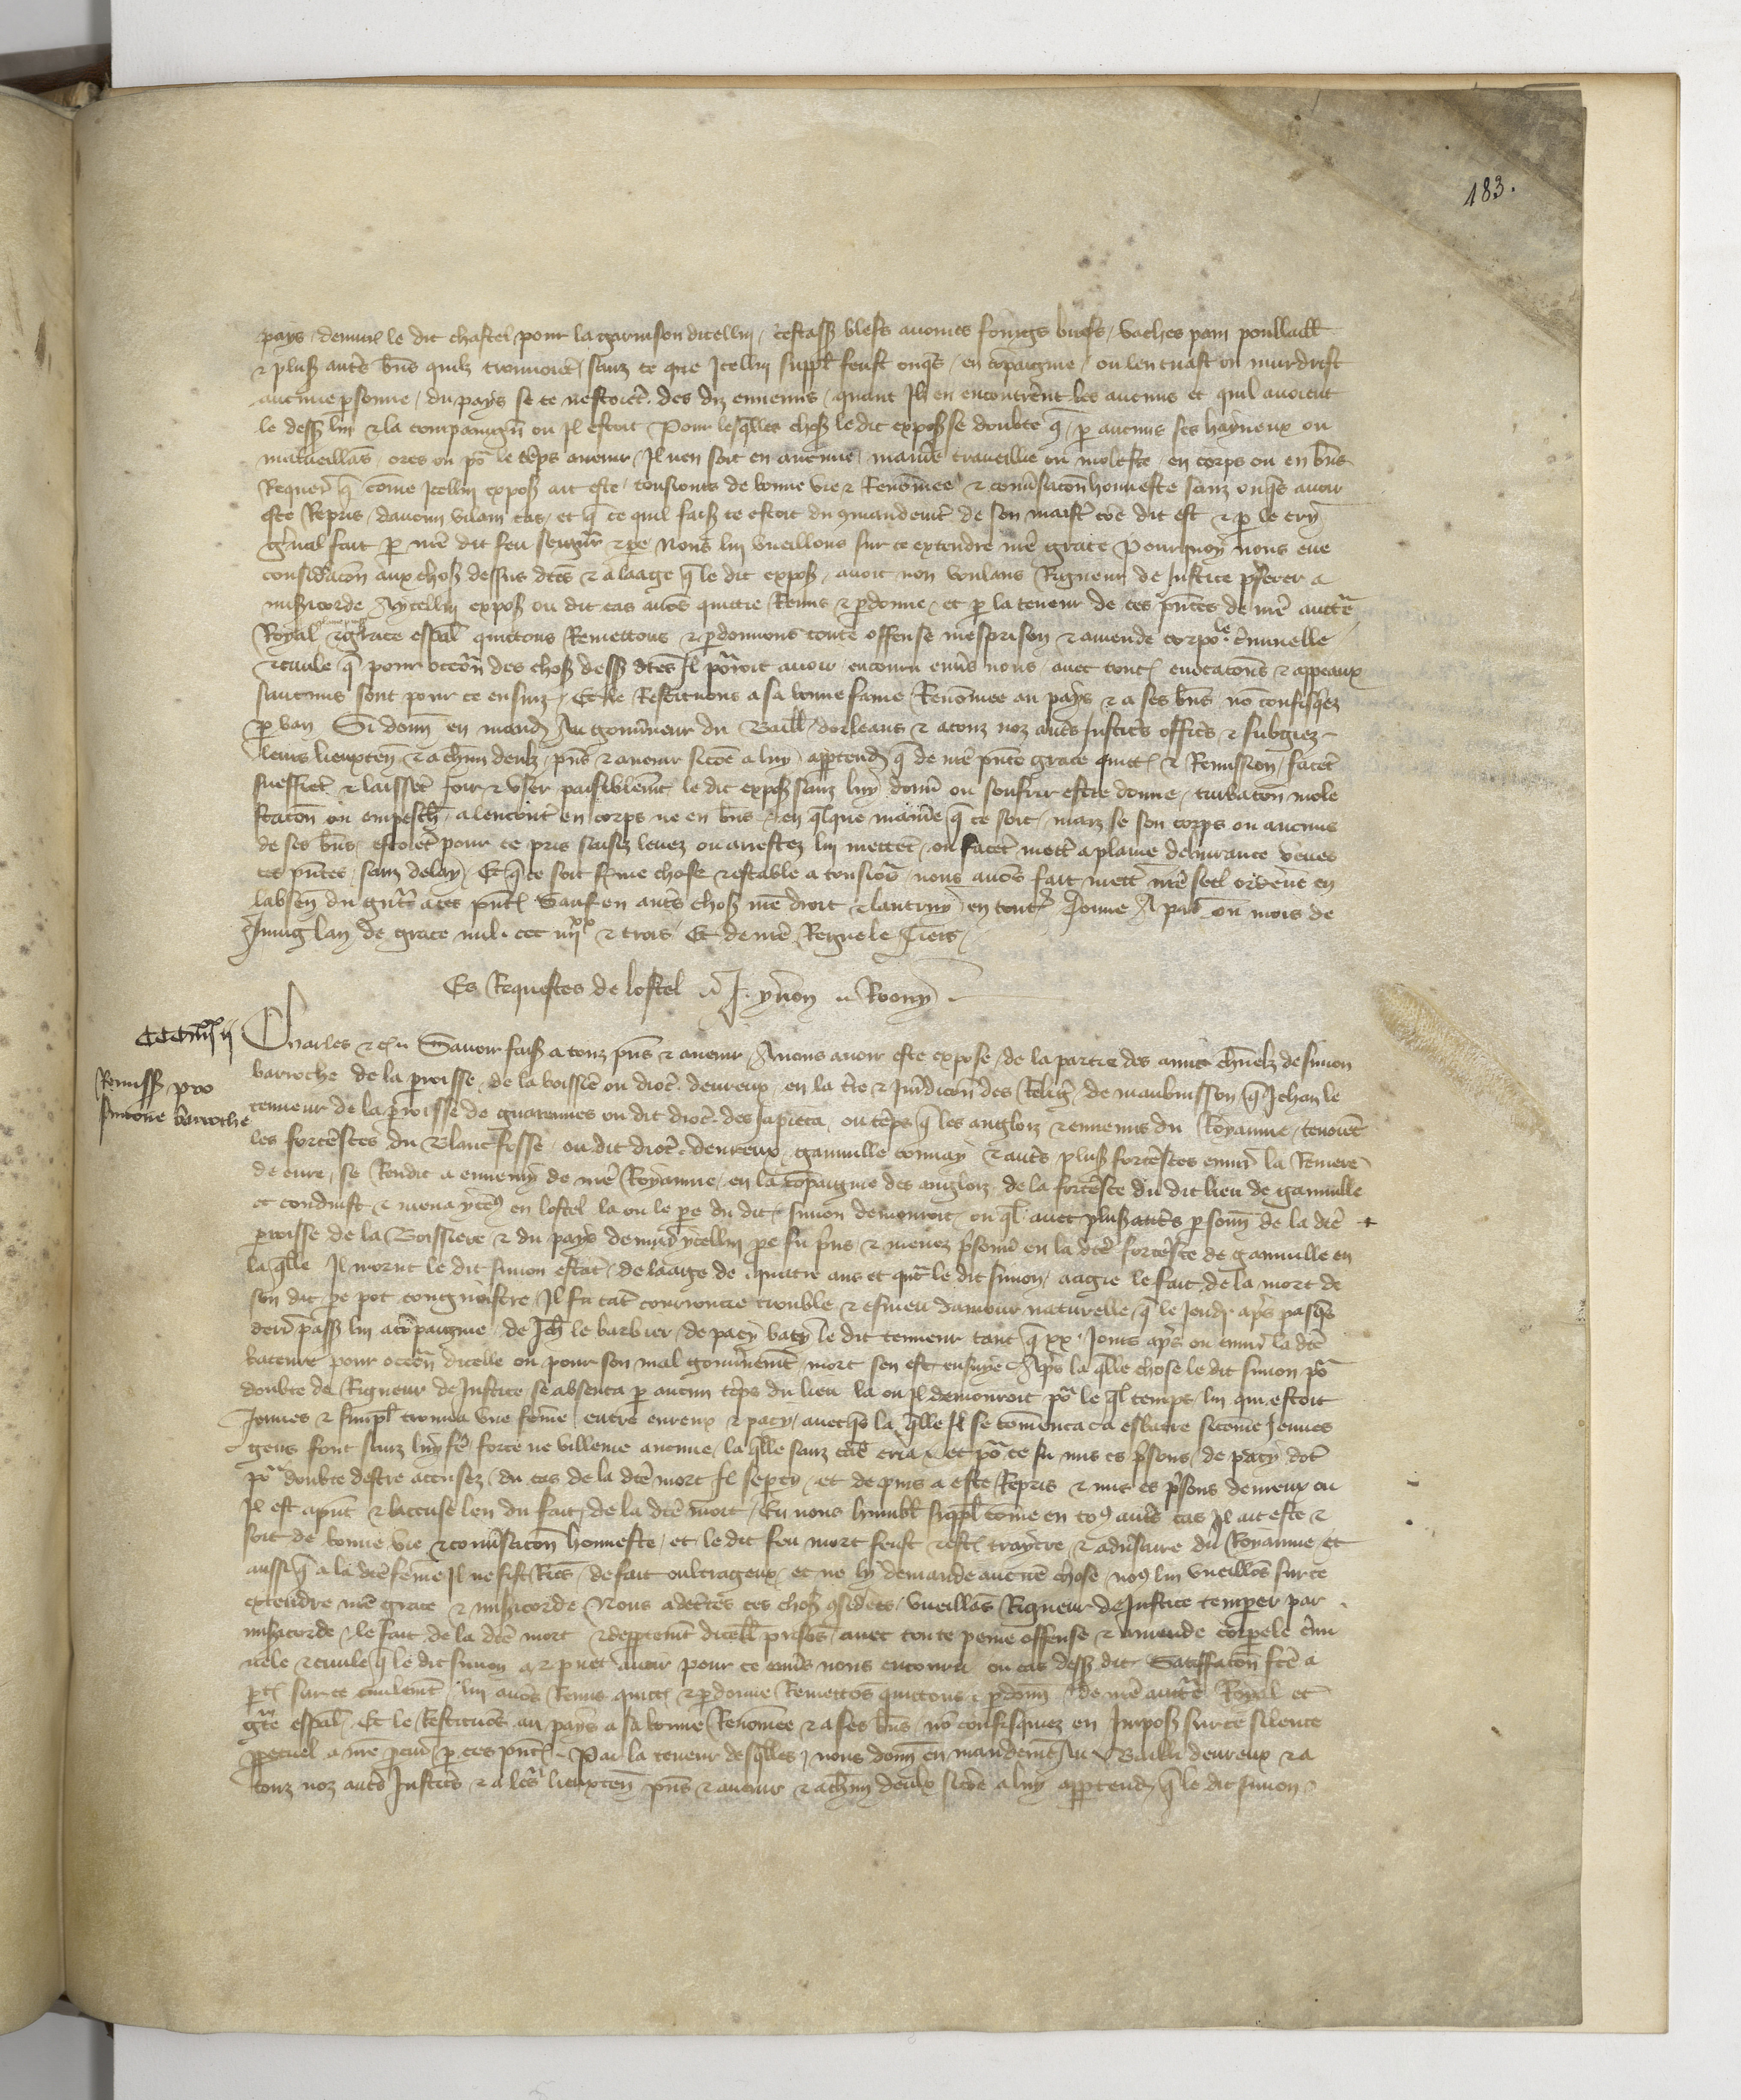 183.
pays / denuirō le dit chastel pour la garnison dicelluy / cestass blefs avoines foings buefs / vaches pain poullaill
& plus͛ aut͛s bn̄s quilz trouuoiēt / sanz ce que Icelluy suppl̄ feust onqs / en cōpaignie / ou len tuast ou murdrist
aucune p̱sonne / du pays se ce nestoiēt des diz ennemis / quant Ilz en encontrerent les aucuns et quil auoient
le dess͛ luy & la compaignie ou Il estoit Pour lesq̄lles chos͛ le dit expos͛ se doubte q̄ / p̱ aucuns ses hayneux ou
malueillās / ores ou po᷑ le tēps auenir / Il nen soit en aucune / maniē traueillie ou moleste / en corps ou en bn̄s
Requer̄ q̄ cōme Icelluy expos͛ ait este / tousiours de bonne vie & Renōmee & conuersacōn honneste sanz onqs auoir
este Repris / daucun vilain cas / et q̄ ce quil fais͛ ce estoit du ꝯmandemēt de son maistr̄ cōe dit est & p̱ le cry
gn̄al fait p̱ nr̄e dit feu seign̄r & pe Nous lui vueillons sur ce extendre nr̄e grace Pourquoy nous eue
consid̄acōn aux chos͛ dessus dc̄es & a laage q̄ le dit expos͛ / auoit non voulans Rigueur de Justice p̄ferer a
mis̄icorde Aycelluy expos͛ ou dit cas auōs quictie Remis & p̱donne / et p̱ la teneur de ces pn̄tes de nr̄e auctē
Royal & grace esp̄al quictons Remettons & p̱donnons toute offense mesprison & amende corpo.le c̄iminelle
& ciuile q̄ pour occōn des chos͛ dess͛ dc̄es Il po᷑roit auoir / encouru enūs nous / auec touz euocacōns & appeaux
saucuns sont pour ce ensuiz / Et le Restituons a sa bonne fame Renōmee au pays & a ses bn̄s nō confisqez
p̱ ban Si donn̄ en mand̄ Au gouūneur du Baill̄ / dorleans & a touz noz aut͛s Justic͛s offic͛s & subgiez
leurs lieuxten̄ & a ch̄un deulz / pn̄s & auenir sicōe a luy app̱tend̄ q̄ de nr̄e pn̄te grace quitt̄ & Remission / facēt
sueffrēt & laissēt Joir & vser paisiblemēt le dit expos͛ sanz luy donn̄ ou souffrir estre donne / turbacōn mole
stacōn ou empesch̄ / alencont͛ en corps ne en bn̄s / en q̄lque maniē q̄ ce soit / maiz se son corps ou aucuns
de ses bn̄s / estoiēt pour ce pris saisiz leuez ou arrestez lui mettēt / ou facēt mett͛ a plaine deliurance veues
ces pn̄tes / sanz delay Et q̄ ce soit fēme chose & estable a tousio᷑s / nous auōs fait mett͛ nr̄e seel ordene en
labsen̄ du gn̄t a ces pn̄t̄ Sauf en aut͛s chos͛ nr̄e droit & lautruy en tout̄ Donne A pa᷑s ou mois de
Juing lan de grace mil. ccc iiij xx & trois / Et de nr̄e Regne le Tiers /
Es Requestes de lostel J. ynon Roony
CCCiiij xx ij
Remiss͛ pro
simone barroche
Charles &c̄ Sauoir fais͛ a touz pn̄s & auenir A nous auoir este expose / de la partie des amis ch̄nelz de simon
barroche de la p̱roisse de la boissiē ou dioc̄. deureux / en la t͛re & Iurīdicōn des Reliḡ. de maubuisson q̄ Jehan le
tenneur de la p̱roisse de guarennes ou dit dioc̄. des Japieca / ou tēps q̄ les anglois & ennemis du Royaume / tenoiēt
les fort͛sces du Blanc fosse / ou dit dioc̄. deureux / gamuille connay & aut͛s plus͛ fort͛sces enuir̄ la Riuiere
de eure / se Rendit a ennemy de nr̄e Royaume / en la cōpaignie des anglois de la fort͛sce du dit lieu de gamuille
et conduist & mena yceuꝯ en lostel la ou le pe du dit simon demouroit / ou q̄l auec plus͛ aut͛s p̱sonn̄ de la dic̄e
p̱roisse de la Boissiere & du pays denuir̄ ycelluy pe fu pris & menez p̄sonn̄ en la dc̄e fort͛sce de gamuille en
la q̄lle Il morut le dit simon estāt / de laaige de quatre ans et qn̄t le dit simon / aagie le fait de la mort de
son dit pe pot congnoistre Il fu tāt courroucie trouble & esmeu damour naturelle / q̄ le Jeudi ap̄s pasq̄s
deɾr̄ pass͛ lui acōpaignie / de Jeh̄ le barbier / de pacy baty le dit tenneur tant q̄ xx Jours ap̄s ou enuir̄ la dc̄e
bateure pour occōn dicelle ou pour son mal gouūnemēt / mort sen est ensuye Ap̄s la q̄lle chose le dit simon po᷑
doubte de Rigueur de Justice se absenta p̱ aucun tēps du lieu la ou Il demouroit po᷑ le q̄l temps / lui qui estoit
Jeunes & simpl̄ trouua vne fēme / entre eureux & pacy / auecqs la q̄lle Il se cōmenca a esbatre sicōme Jeunes
gens font sanz luy fē force ne villenie aucune / la q̄lle sanz cāe cria et po᷑ ce fu mis es p̄sons / de pacy dōt
po᷑ doubte destre accusez / du cas de la dc̄e mort Il se pty / et depuis a este Repris & mis es p̄sons deureux ou
Il est a pn̄t & laccuse len du fait / de la dc̄e mort / En nous humbl̄ suppl̄ cōme en toꝯ aut͛s cas Il ait este &
soit de bonne vie & conūsacōn honneste / et le dit feu mort feust & est̄ traytre & adūsaire du Royaume / et
aussi q̄ a la dic̄e fēme Il ne fist Riēs / de fait oultrageux / et ne ly demande aucune chose / noꝯ lui vueillōs sur ce
extendre nr̄e grace & mis̄icorde Nous adc̄ertes ces chos͛ ꝯsiderēs / vueillās Rigueur de Justice temp̱er par
mis̄icorde / le fait de la dc̄e mort & desp̱temt dicell̄ p̄sōs / auec toute peine offense & amende corpele c̄imi
nele & ciuile q̄ le dit simon a & puet auoir pour ce enūs nous encouru ou cas dess͛ dit Satisfacōn fc̄e a
pt̄ sur ce ciuilemēt / lui auōs Remis quitt̄ & p̱donne Remettōs quictons & p̱donn̄ / de nr̄e auctē Royal et
gr̄ce esp̄al / Et le Restituōs au pays a sa bonne Renōmee & a ses bn̄s / nō confisquiez en Impos͛ sur ce silence
p̱petuel a nr̄e p̱cur̄ p̱ ces pn̄t̄ Par la teneur desq̄lles nous donn̄ en mandemēt Au Bailli deureux & a
touz noz aut͛s Justic͛s & a le᷑s lieuxten̄ pn̄s & auenir & a ch̄un deulx sicōe a luy app̱tend̄ / q̄ le dit simon